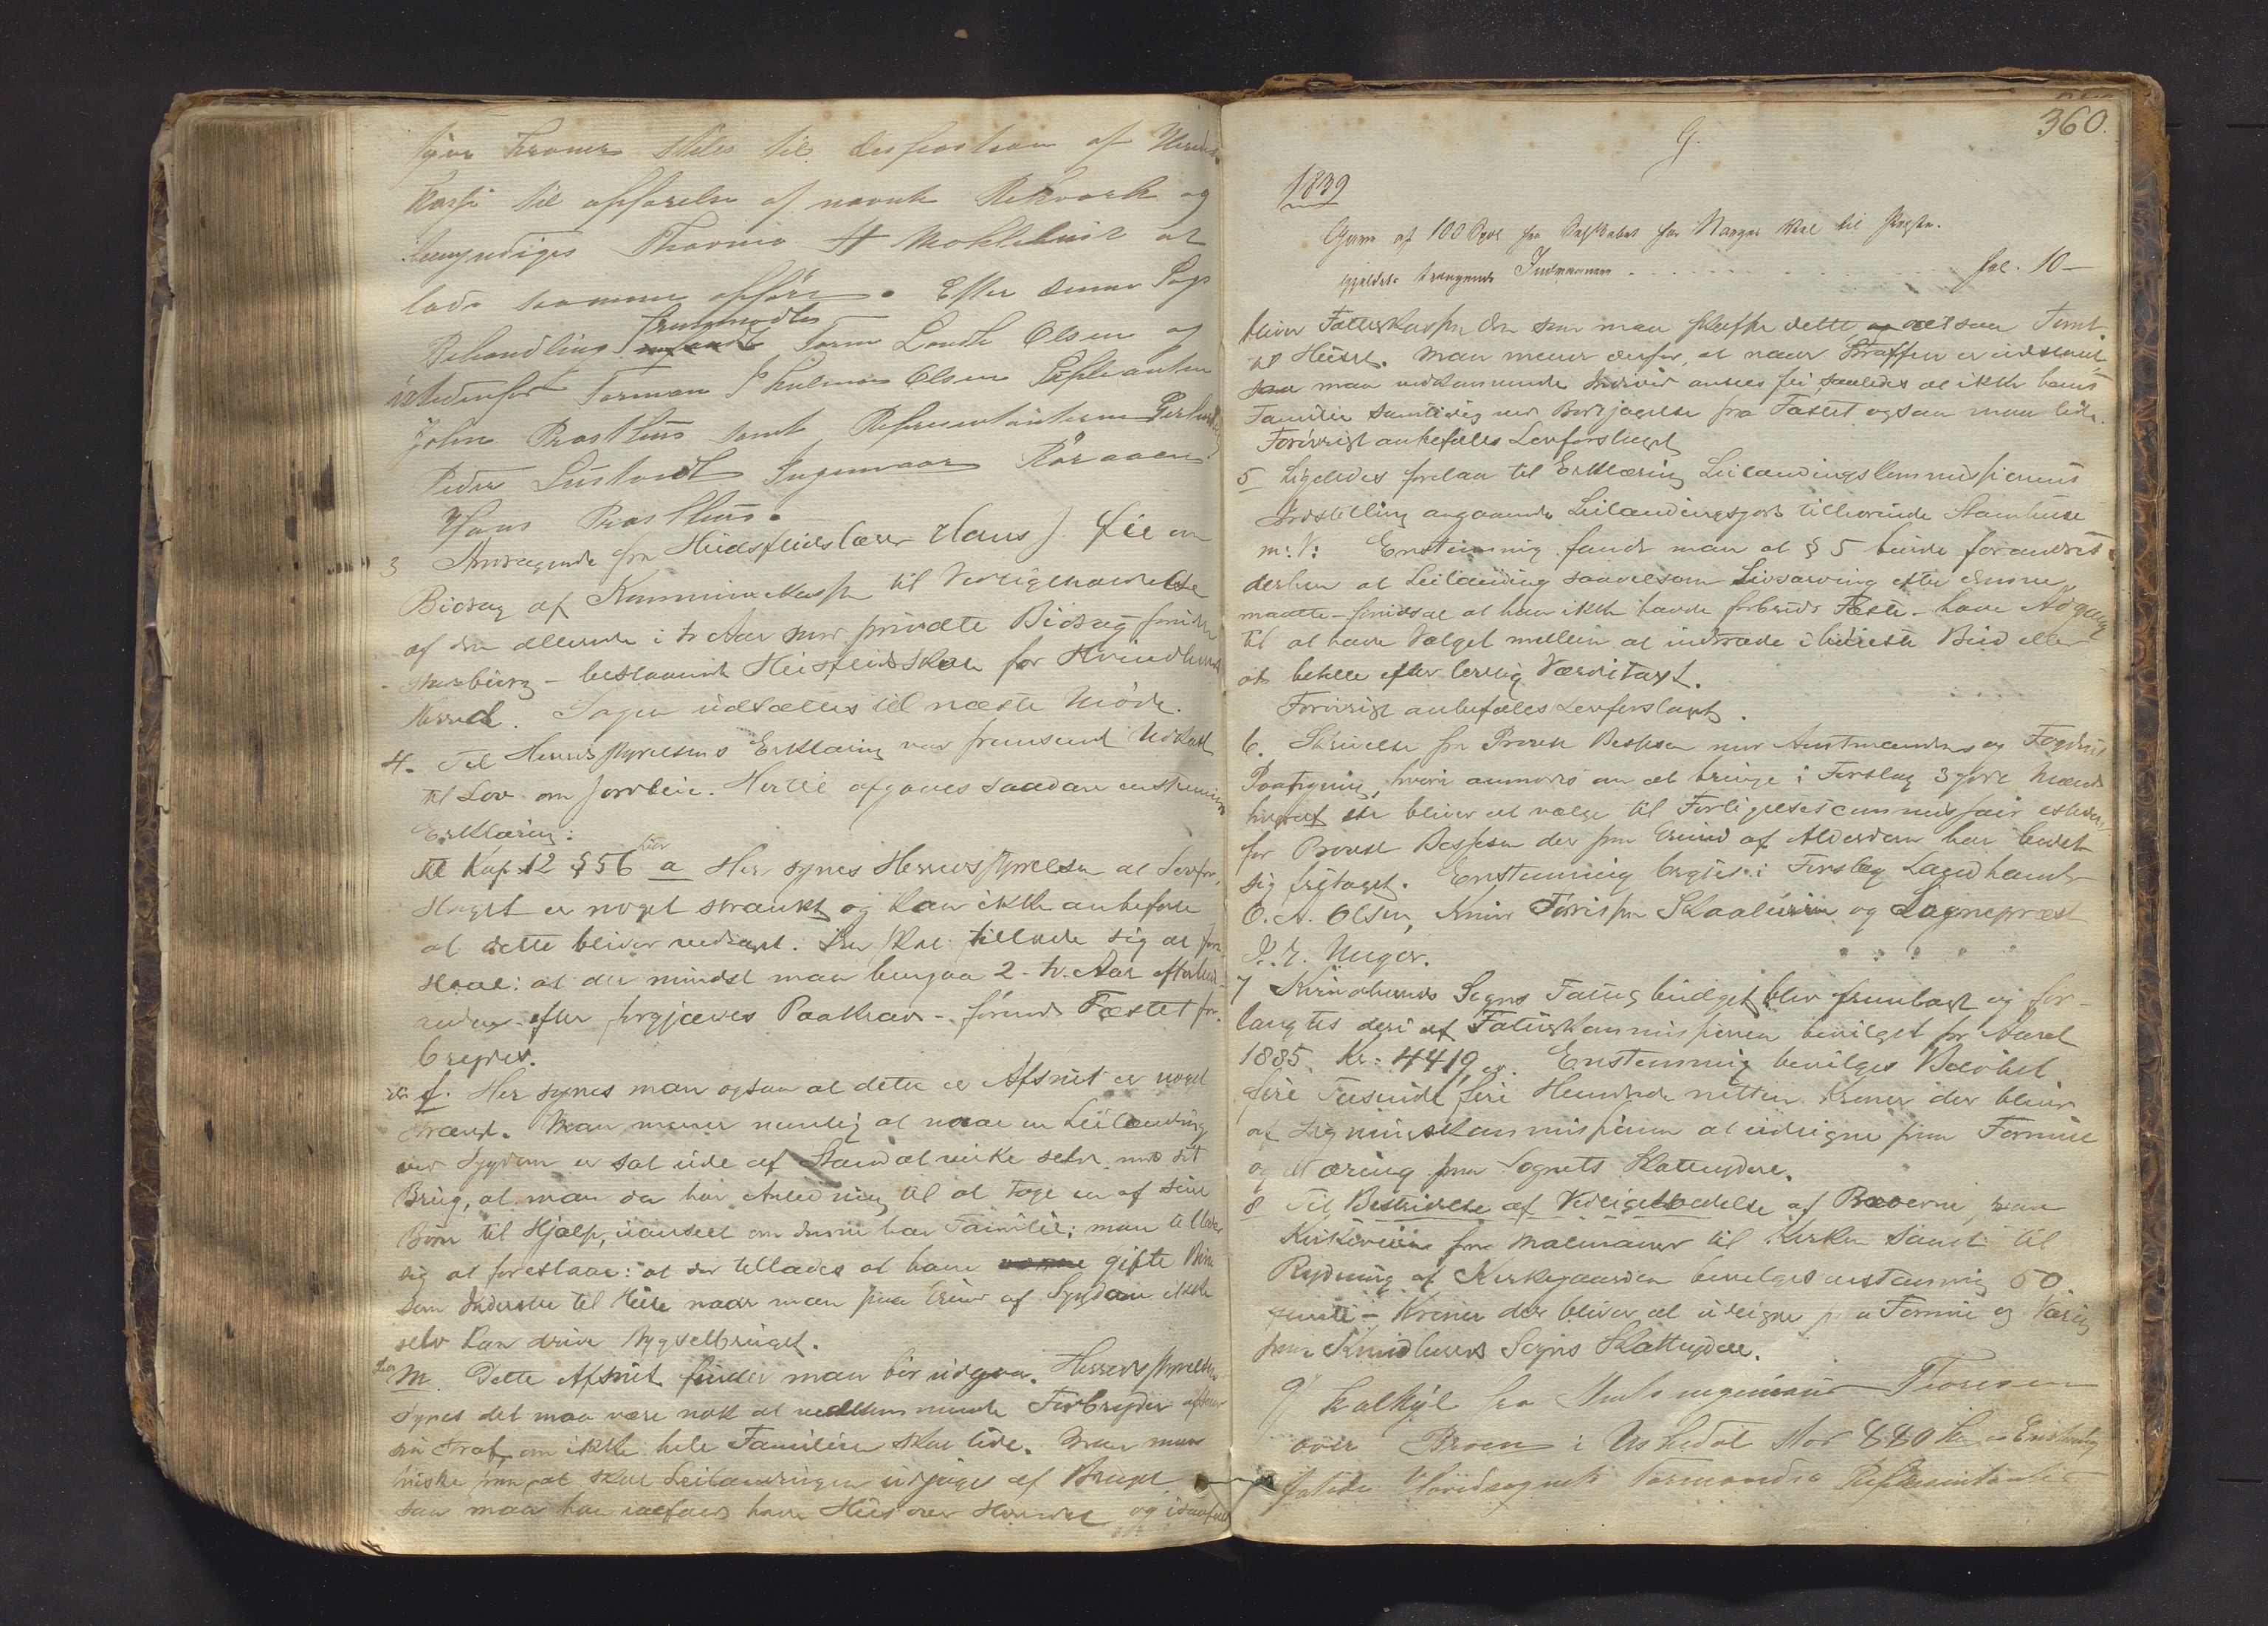 Kroner stilles til disposition af
Kasse til opførelse af nævnte Rekværk og
bemyndiges Thormo H Moklebust at
lade samme opføre. Efter denne Sags
Behandling fremmødte Form Londt Olsen og
istedenfor Forman Olsen Supleanten
John Præsthus samt Representanterne
Peder Ingemaar Røraaen
Hans Præsthus.
3 Andragende fra Husflidslærer Claus J. om
Bidrag af Kommunekassen til Vedligeholdelse
af den allerede i to Aar med private Bidrag
bestaaende Husflidsskole for
Herred. Sagen udsættes til næste Møde.
4. Til Herredsstyrelsens Erklæring var fremsendt Udkast
til Lov om Jordleie. Hertil afgaves saadan enstemmig
Erklæring:
Til Kap 12 § 56 litr a Her synes Herredsstyrelsen at Lovfor-
slaget er noget strænkt og kan ikke anbefale
at dette bliver vedtaget. Den skal tillade sig at fore-
slaae: at der mindst maa hengaa 2 - to - Aar efterhin-
anden - efter forgjæves Paakrav - førend Fæstet for-
brydes.
litr f. Her synes man ogsaa at dette er Afsnit er noget
strængt. Man mener nemlig at naar en Leilænding
ved Sygdom er sat ude af Stand at virke selv med sit
Brug, at man da har Anledning til at tage en af sine
Børn til Hjælp, uanseet om denne har Familie; man tillader
sig at foreslaae: at der tillades at have gifte Børn
som Inderster til Huse naar man paa Grund af Sygdom ikke
selv kan drive Bygselbruget.
litr m. Dette Afsnit finder man bør udgaa. Herredsstyrelsen
synes det maa være nok at vedkommende Forbryder afsoner
sin Straf, om ikke hele Familien skal lide. Man maa
huske paa, at skal Leilændingen udjages af Bruget
saa maa han ialfald have Hus over Hovedet og isaafald
360.
G.
1839
af 100 Spd fra Selskabet for Norges Vel til Præste-
gjeldets trængende Indvaanere . . . . . . . . . fol. 10 -
bliver Fattigkassen den som maa skaffe dette ogsaa Tomt
til Huset. Man mener derfor, at naar Straffen er udstaaet
maa vedkommende Individ ansees fri, saaledes at ikke hans
Familie samtidig ved Bortjagelse fra Fæstet ogsaa maa lide.
Forøvrigt anbefales Lovforslaget
5 Ligeledes forelaa til Erklæring Leilændingskommissionens
Indstilling angaaende Leilændingsgods tilhørende Stamhuse
m: V: Enstemmig fandt man at § 5 burde forandres
derhen at Leilænding saavelsom Livsarving efter denne,
maatte - forudsat at han ikke havde forbrudt Fæste - have Adgang
til at have Valget mellem at indtræde i høieste Bud eller
at betale efter lovlig Værditaxt.
Forøvrigt anbefales Lovforslaget.
6. Skrivelse fra Provst med Amtmandens og Fogdens
Paategning, hvori anmodes om at bringe i Forslag 3 gode Mænd
hvoraf en bliver at vælge til Forligelsescommissair istedet
for Provst der paa Grund af Alderdom har bedet
sig fritaget. Enstemmig bragtes i Forslag Landhandler
O. A. Olsen, Knud Skaalurin og Sognepræst
J. E. Unger.
7 Kvindherreds Sogns Fattigbudget blev fremlagt og for-
langtes deri af Fattigkommissionen bevilget for Aaret
1885 Kr: 4419,00. Enstemmig bevilges Beløbet
fire Tusinde fire Hundrede nitten Kroner der bliver
af Ligningskommissionen at udligne paa Formue
og Næring paa Sognets Skatteydere.
8 Til Bestridelse af Vedligeholdelse af Broerne paa
Kirkeveien fra Malmanger til Kirken samt til
Rydning af Kirkegaarden bevilges enstemmig 50
femti - Kroner der bliver at udligne paa Formue og Næring
paa Kvindherreds Sogns Skatteydere.
9) Kalkyl fra Amtsingeniør
over Broen i Uskedal stor 880 Kr Enstemmig
Hovedsognets Formænd Representanter